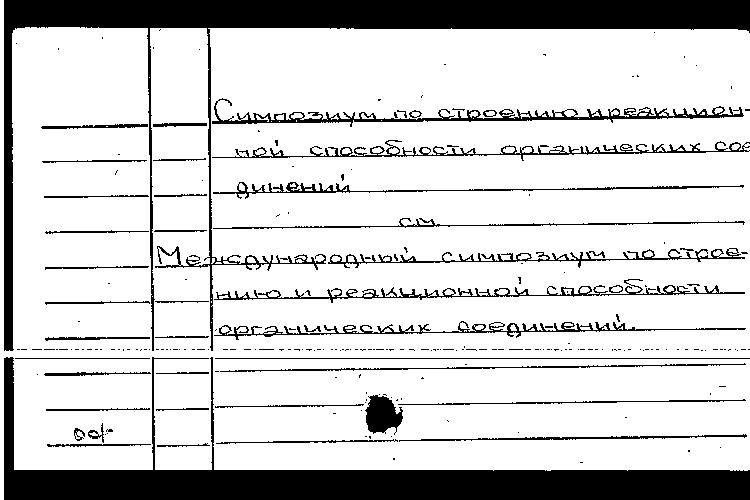 Симпозиум по строению и реакцион-
ной способности органических сое
динений
см.
Международный симпозиум по строе-
нию и реакционной способности
органических соединений.